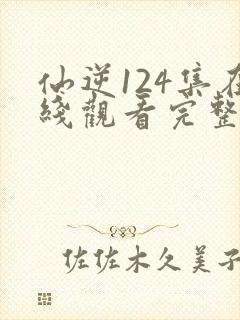 仙逆124集在
綫觀看完整
佐佐木久美子